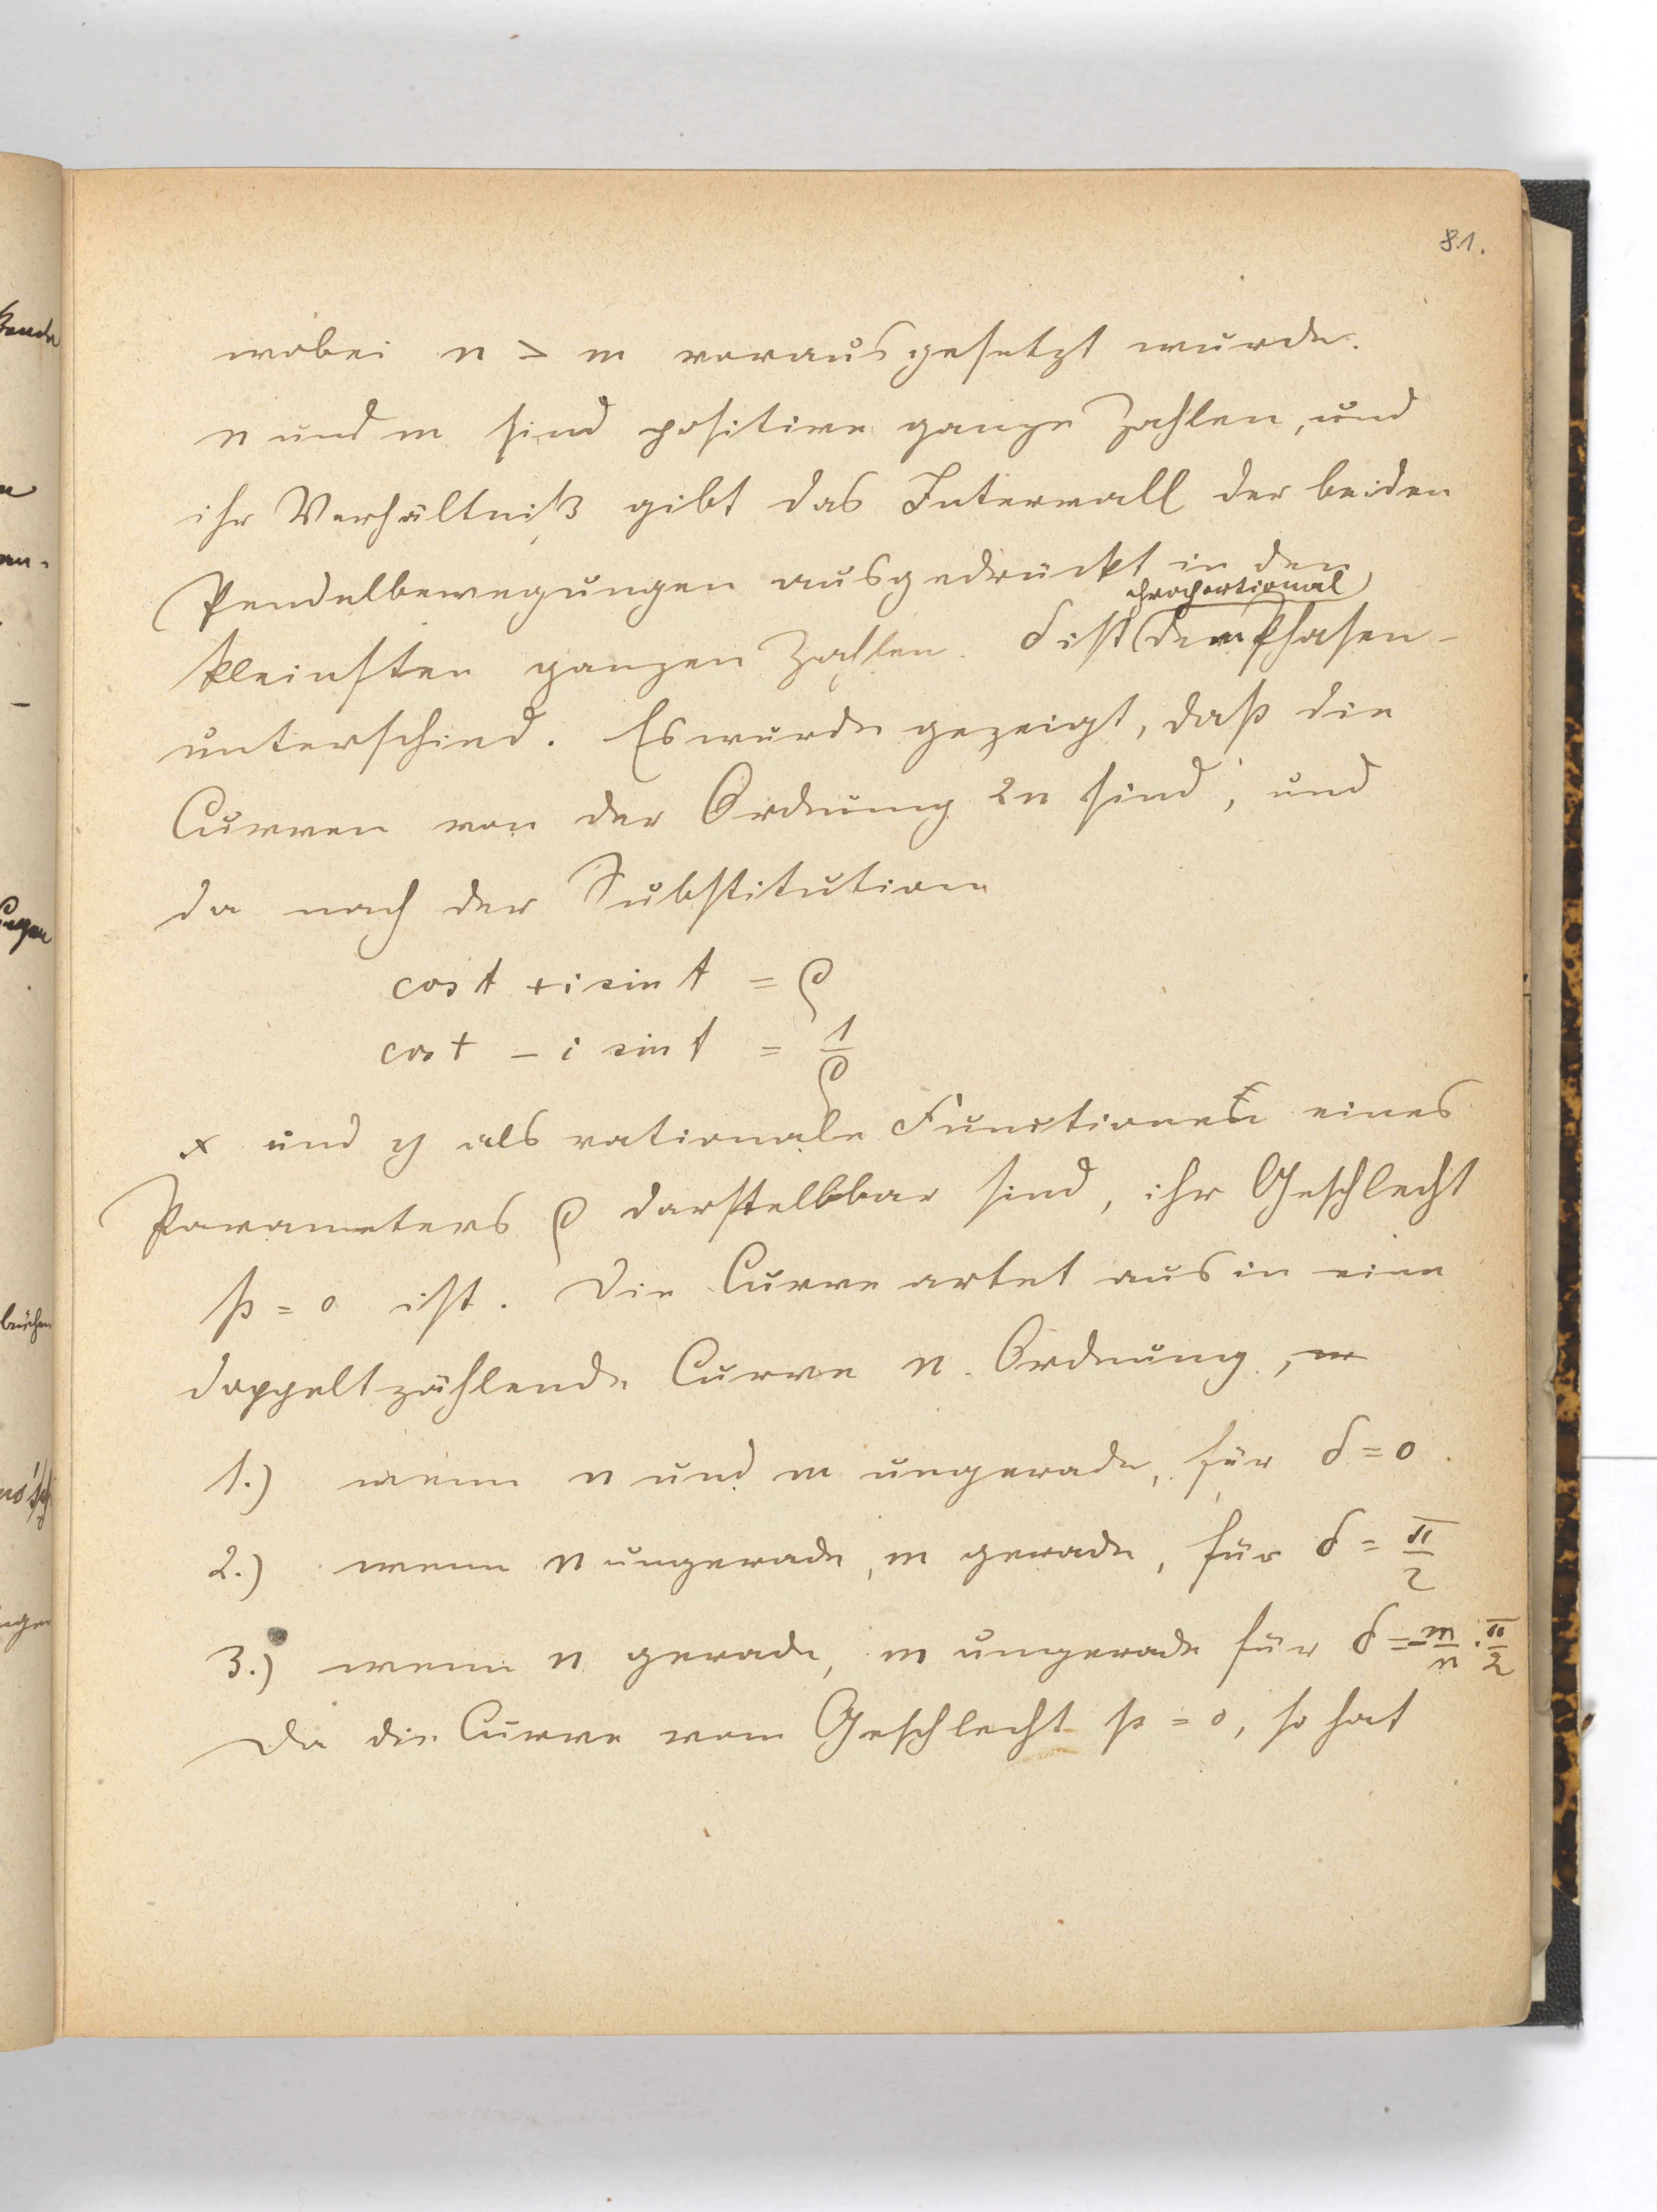 81.
wobei n > m vorausgesetzt wurde.
n und m sind positive ganze Zahlen, und
ihr Verhältniß gibt das Intervall der beiden
Pendelbewegungen ausgedrückt in den
proportional
kleinsten ganzen Zahlen. δ ist dem Phasen-
unterschied. Es wurde gezeigt, daß die
Curven von der Ordnung 2n sind, und
da nach der Substitution
cos t + i sin t = ρ
cos t - i sin t = 1/ρ
x und y als rationale Functionen eines
Parameters ρ darstellbar sind, ihr Geschlecht
p = 0 ist. Die Curve artet aus in eine
doppeltzählende Curve n. Ordnung,
1.) wenn n und m ungerade, für δ = 0.
2.) wenn n ungerade, m gerade, für δ = π/2
3.) wenn n gerade, m ungerade für δ = - m/n · π/2
Da die Curve vom Geschlecht p = 0, so hat